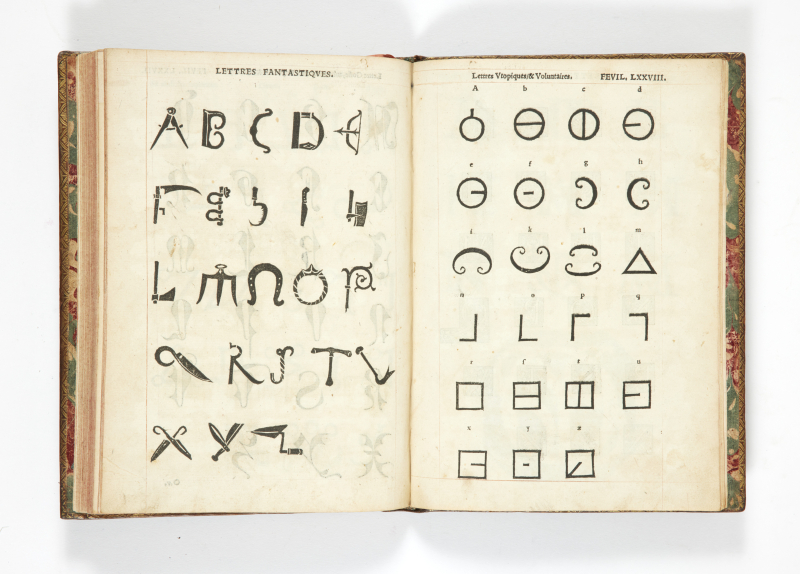 LETTRES FANTASTIQVES.
A B C D E
F G H I K
L M N O P
Q R S T V
X Y Z
Lettres Vtopiques, & Voluntaires. FEVIL, LXXVIII.
A b c d
e f g h
i k l m
n o p q
r ſ t u
x y z